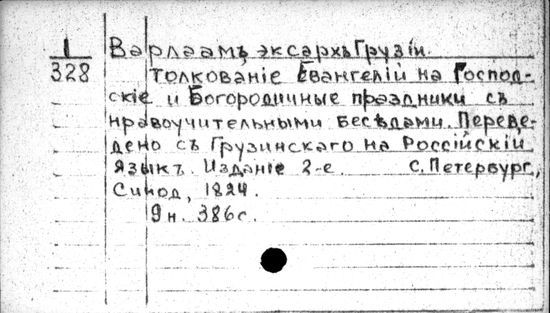 1
328
Варлаамъ, эксархъ Грузіи.
Толкованіе Евангелій на Господ-
скіе и Богородичные праздники съ
нравоучительными бесѣдами. Переве-
дено съ Грузинскаго на Россійскій
языкъ. Изданіе 2-е. С. Петербург,
Синод, 1824.
9н. 386с.